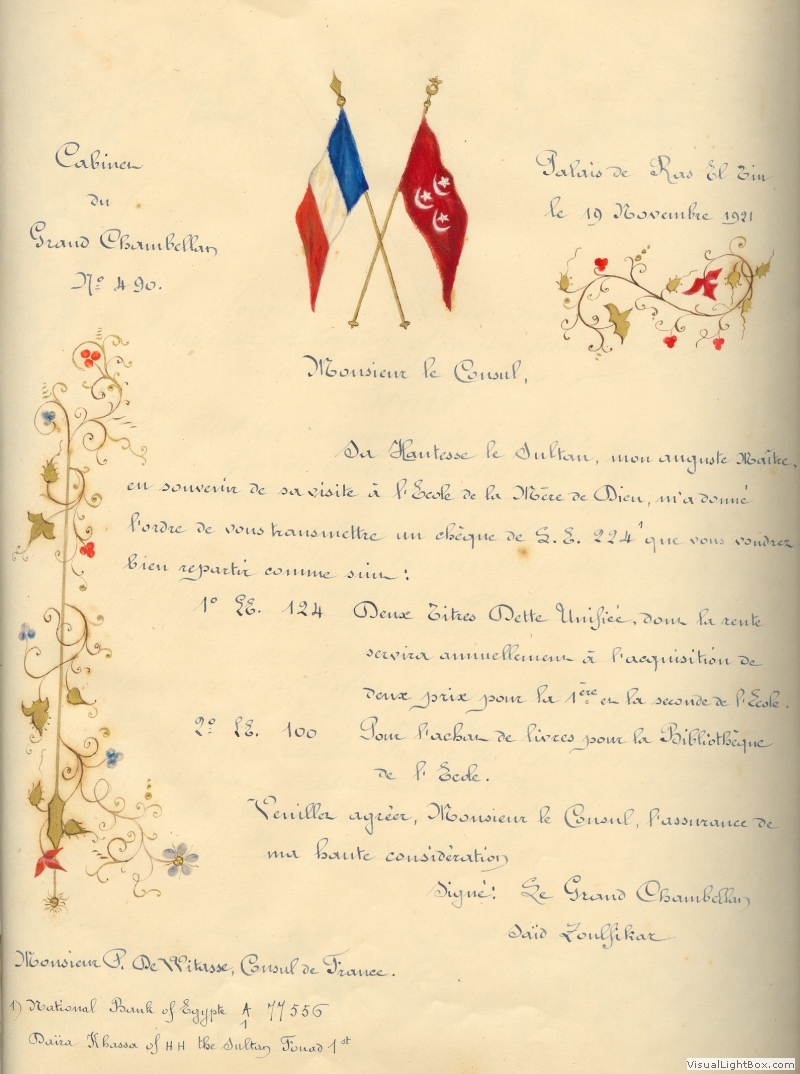 Cabinet
du
Grand Chambellan
Nº 490.
Palais de Ras El Tin
le 19 Novembre 1921
Monsieur le Consul,
Sa Hautesse le Sultan, mon auguste Maître,
en souvenir de sa visite à l'Ecole de la Mère de Dieu, m'a donné
l'ordre de vous transmettre un chèque de L.E. 224¹ que vous voudrez
bien repartir comme suit :
1º LE. 124 Deux Titres Dette Unifiée, dont la rente
servira annuellement à l'acquisition de
deux prix pour la 1ère et la seconde de l'Ecole.
2º LE. 100 Pour l'achat de livres pour la Bibliothèque
de l'Ecole.
Veuillez agréer, Monsieur le Consul, l'assurance de
ma haute considération
Signé: Le Grand Chambellan
Saïd Zoulfikar
Monsieur P. De Witasse, Consul de France.
1) National Bank of Egypte A/1 77556
Daïra Khassa of HH the Sultan Fouad 1st
VisualLightBox.com